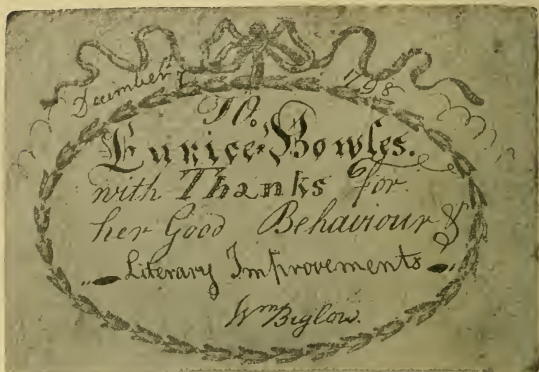 December 1798
To.
Eunice Bowles.
with Thanks for
her Good Behaviour &
Literary Improvements
Wm Biglow.